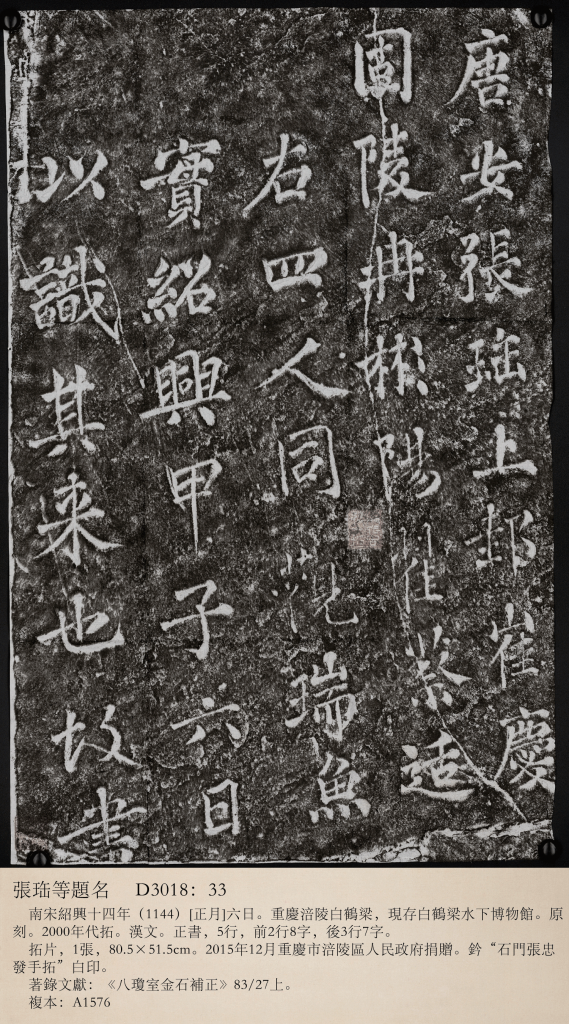 唐安張珤上邽崔慶
固陵冉彬陽翟蔡适
右四人同觀瑞魚
實紹興甲子六日
以識其来也故書
張珤等題名 D3018：33
南宋紹興十四年（1144）[正月]六日。重慶涪陵白鶴梁，現存白鶴梁水下博物館。原
刻。2000年代拓。漢文。正書，5行，前2行8字，後3行7字。
拓片，1張，80.5×51.5cm。2015年12月重慶市涪陵區人民政府捐贈。鈐“石門張忠
發手拓”白印。
著錄文獻：《八瓊室金石補正》83/27上。
複本：A1576